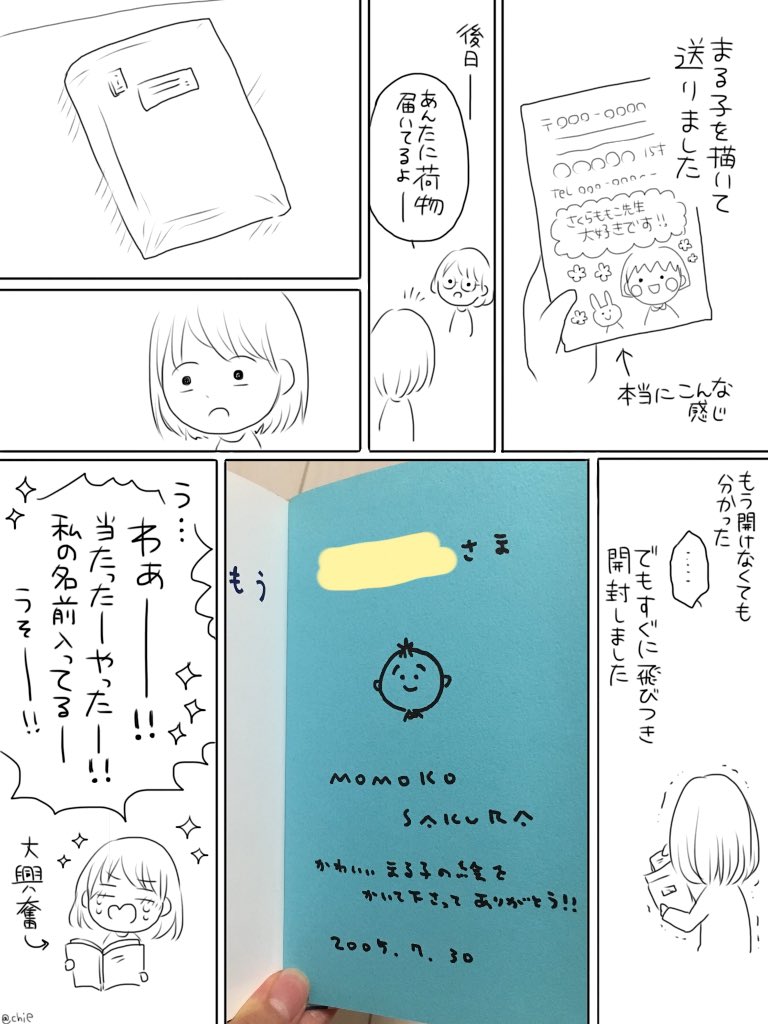 まる子を描いて
送りました
〒000-0000
○○○○○ 15才
TEL 000-0000-
さくらももこ先生
大好きです!!
本当にこんな
感じ
後日——
あんたに荷物
届いてるよー
もう開けなくても
分かった
・・・・
でもすぐに飛びつき
開封しました
さま
MOMOKO
SAKURA
かわいい まる子の絵を
かいて下さって ありがとう!!
2005. 7. 30
もう
う…
わぁ——!!
当たったーやったー!!
私の名前入ってるー
うそー!!
大興奮
@.chie